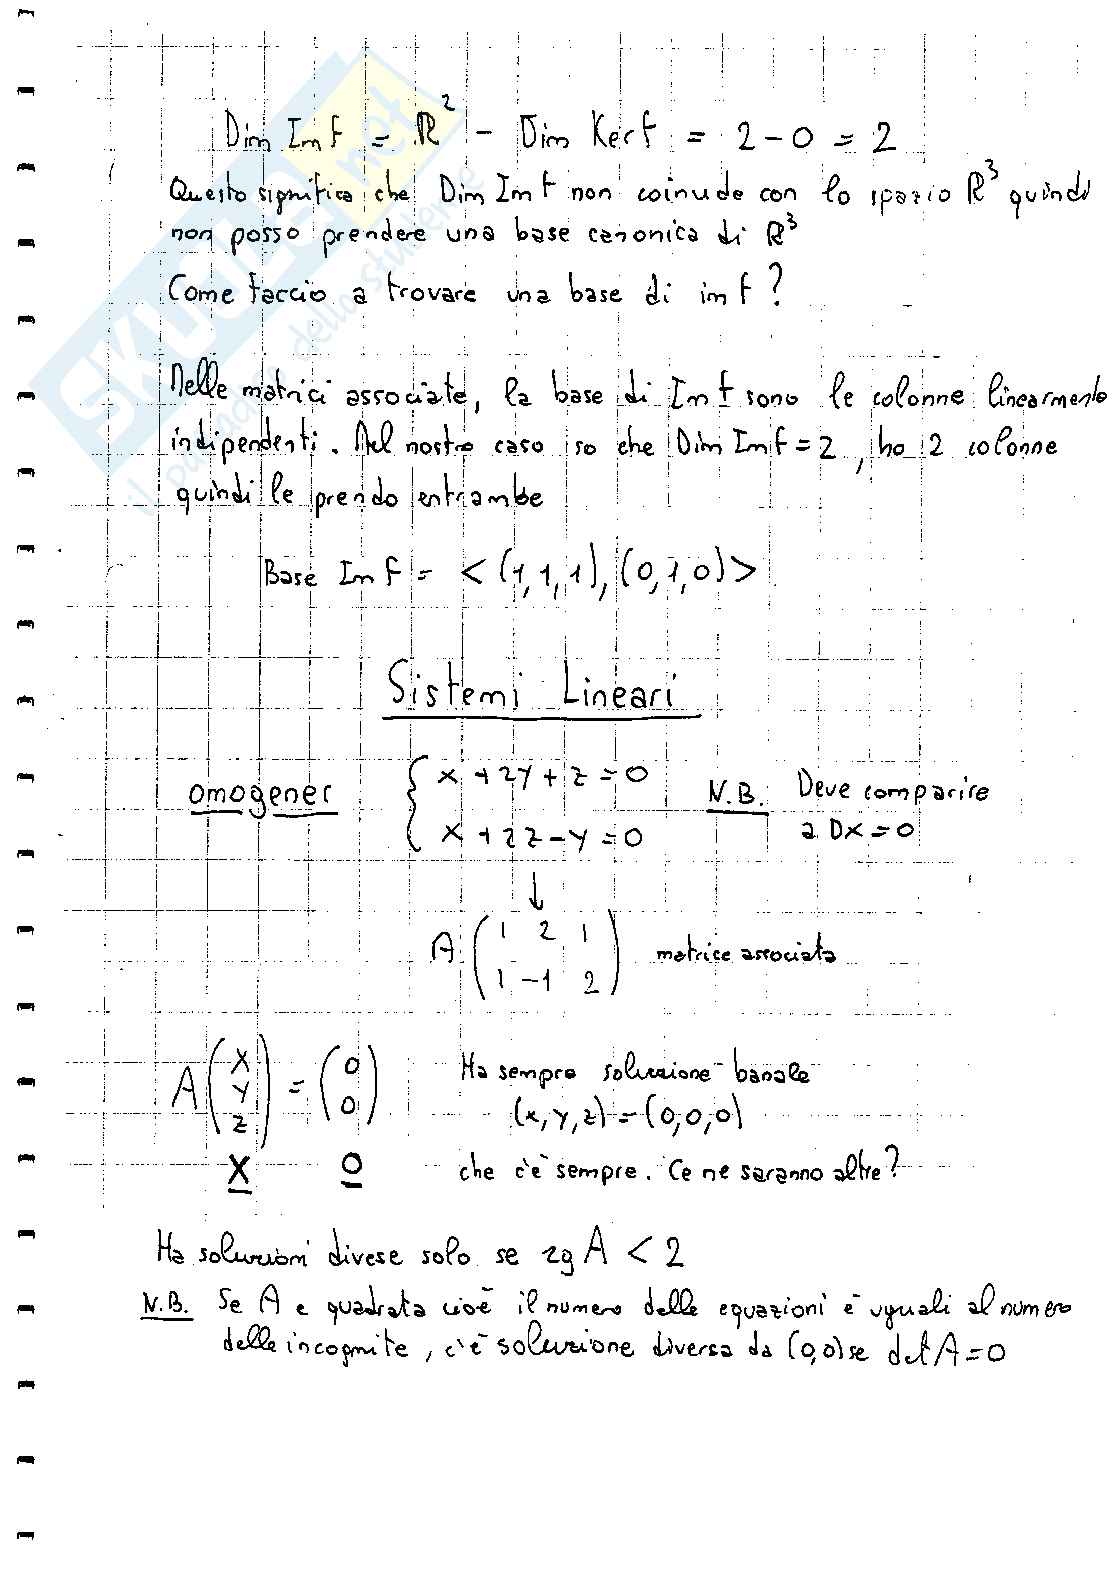 Dim Im f = ℝ² - Dim Ker f = 2 - 0 = 2
Questo significa che Dim Im f non coincide con lo spazio ℝ³ quindi
non posso prendere una base canonica di ℝ³
Come faccio a trovare una base di im f?
Nelle matrici associate, la base di Im f sono le colonne linearmente
indipendenti. Nel nostro caso so che Dim Im f = 2, ho 2 colonne
quindi le prendo entrambe
Base Im f = <(1,1,1),(0,1,0)>
Sistemi Lineari
omogenei { x + 2y + z = 0 N.B. Deve comparire
x + 2z - y = 0 a Dx = 0
↓
A (1 2 1
1 -1 2) matrice associata
A (x y z) = (0 0) Ha sempre soluzione banale
(x, y, z) = (0,0,0)
X 0 che c'è sempre. Ce ne saranno altre?
Ha soluzioni divese solo se rg A < 2
N.B. Se A e quadrata cioè il numero delle equazioni è uguali al numero
delle incognite, c'è soluzione diversa da (0,0) se det A = 0
SKUOLA.net
il paradiso dello studente